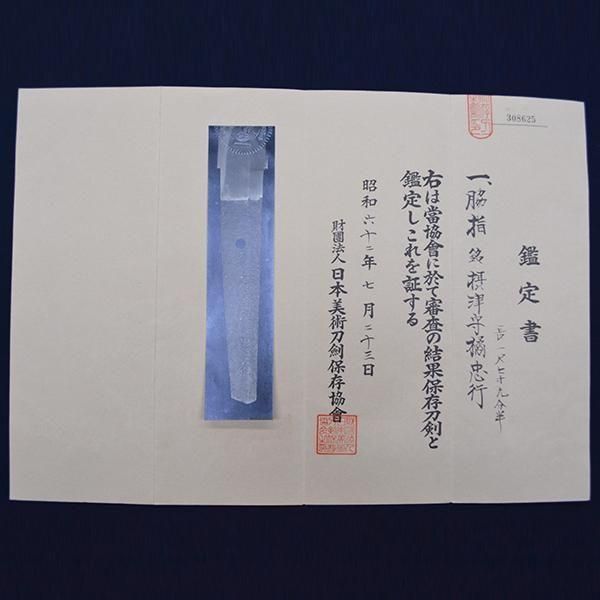 308625
鑑定書
一、脇指 銘 摂津守橘忠行
長一尺七寸九分半
右は當協會に於て審査の結果保存刀剣と
鑑定しこれを証する
昭和六十二年七月二十三日
財團法人日本美術刀剣保存協會